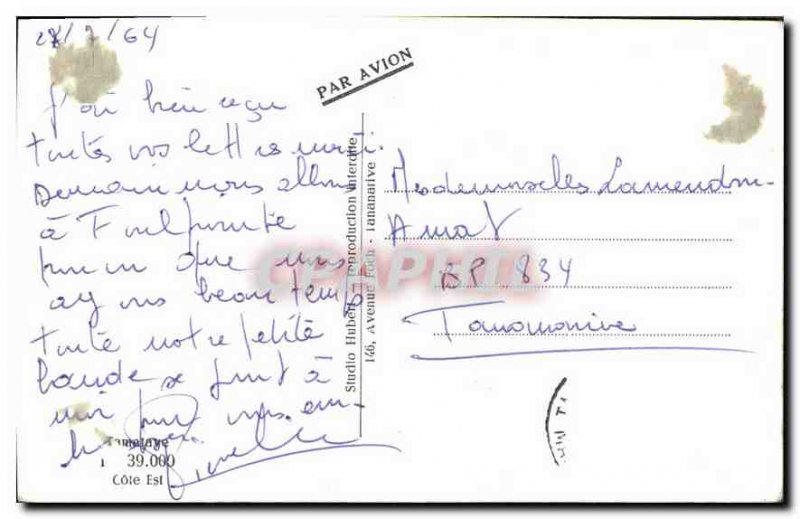 28/7/64
J'ai bien reçu
toutes vos lettres merci.
Demain nous allons
à Foulpointe
pourvu que nous
ayons beau temps
toute notre petite
bande se joint à
moi pour vous em-
PAR AVION
Studio Hubert - reproduction interdite
146, Avenue Foch - Tananarive
Mesdemoiselles Lamendin-
Amat
BP 834
Tananarive
Tamatave
39.000
Côte Est
CPAPHIL